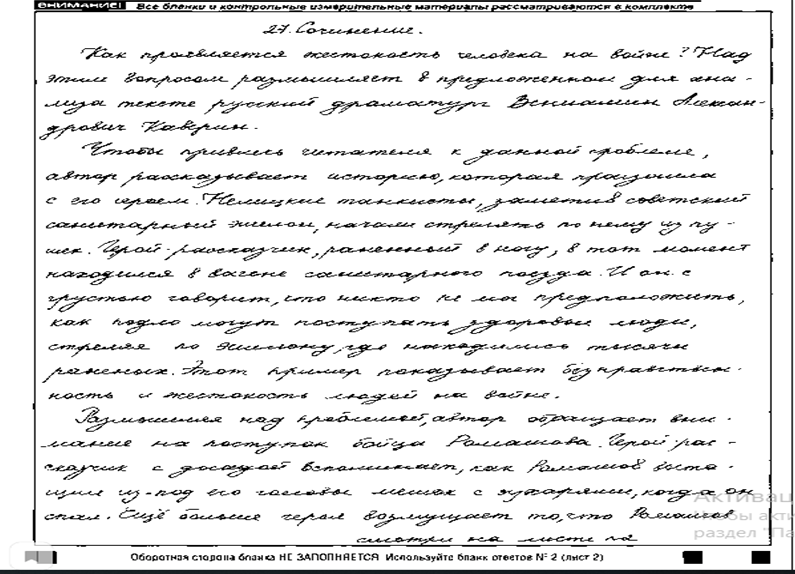 ВНИМАНИЕ! Все бланки и контрольные измерительные материалы рассматриваются в комплекте
27. Сочинение.
Как проявляется жестокость человека на войне? Над
этим вопросом размышляет в предложенном для ана-
лиза тексте русский драматург Вениамин Алексан-
дрович Каверин.
Чтобы привлечь читателя к данной проблеме,
автор рассказывает историю, которая произошла
с его героем. Немецкие танкисты, заметив советский
санитарный эшелон, начали стрелять по нему из пу-
шек. Герой-рассказчик, раненный в ногу, в тот момент
находился в вагоне санитарного поезда. И он с
грустью говорит, что никто не мог предположить,
как подло могут поступать здоровые люди,
стреляя по эшелону, где находились тысячи
раненых. Этот пример показывает безнравствен-
ность и жестокость людей на войне.
Размышляя над проблемой, автор обращает вни-
мание на поступок бойца Ромашова. Герой-рас-
сказчик с досадой вспоминает, как Ромашов выта-
щил из-под его головы мешок с сухарями, когда он
спал. Ещё больше героя возмущает то, что Ромашов
смотри на листе
Оборотная сторона бланка НЕ ЗАПОЛНЯЕТСЯ. Используйте бланк ответов № 2 (лист 2)
Активац
Чтобы акти
раздел "Па